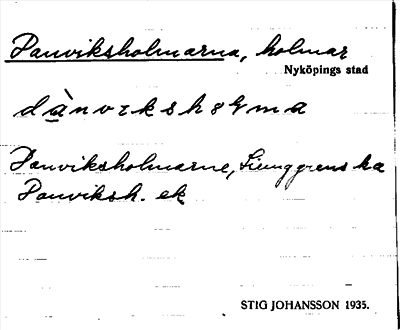 Danviksholmarna, holmar
Nyköpings stad
dànvıkshɷɫma
Danviksholmarne, Ljunggrens ka
Danviksh. ek
STIG JOHANSSON 1935.